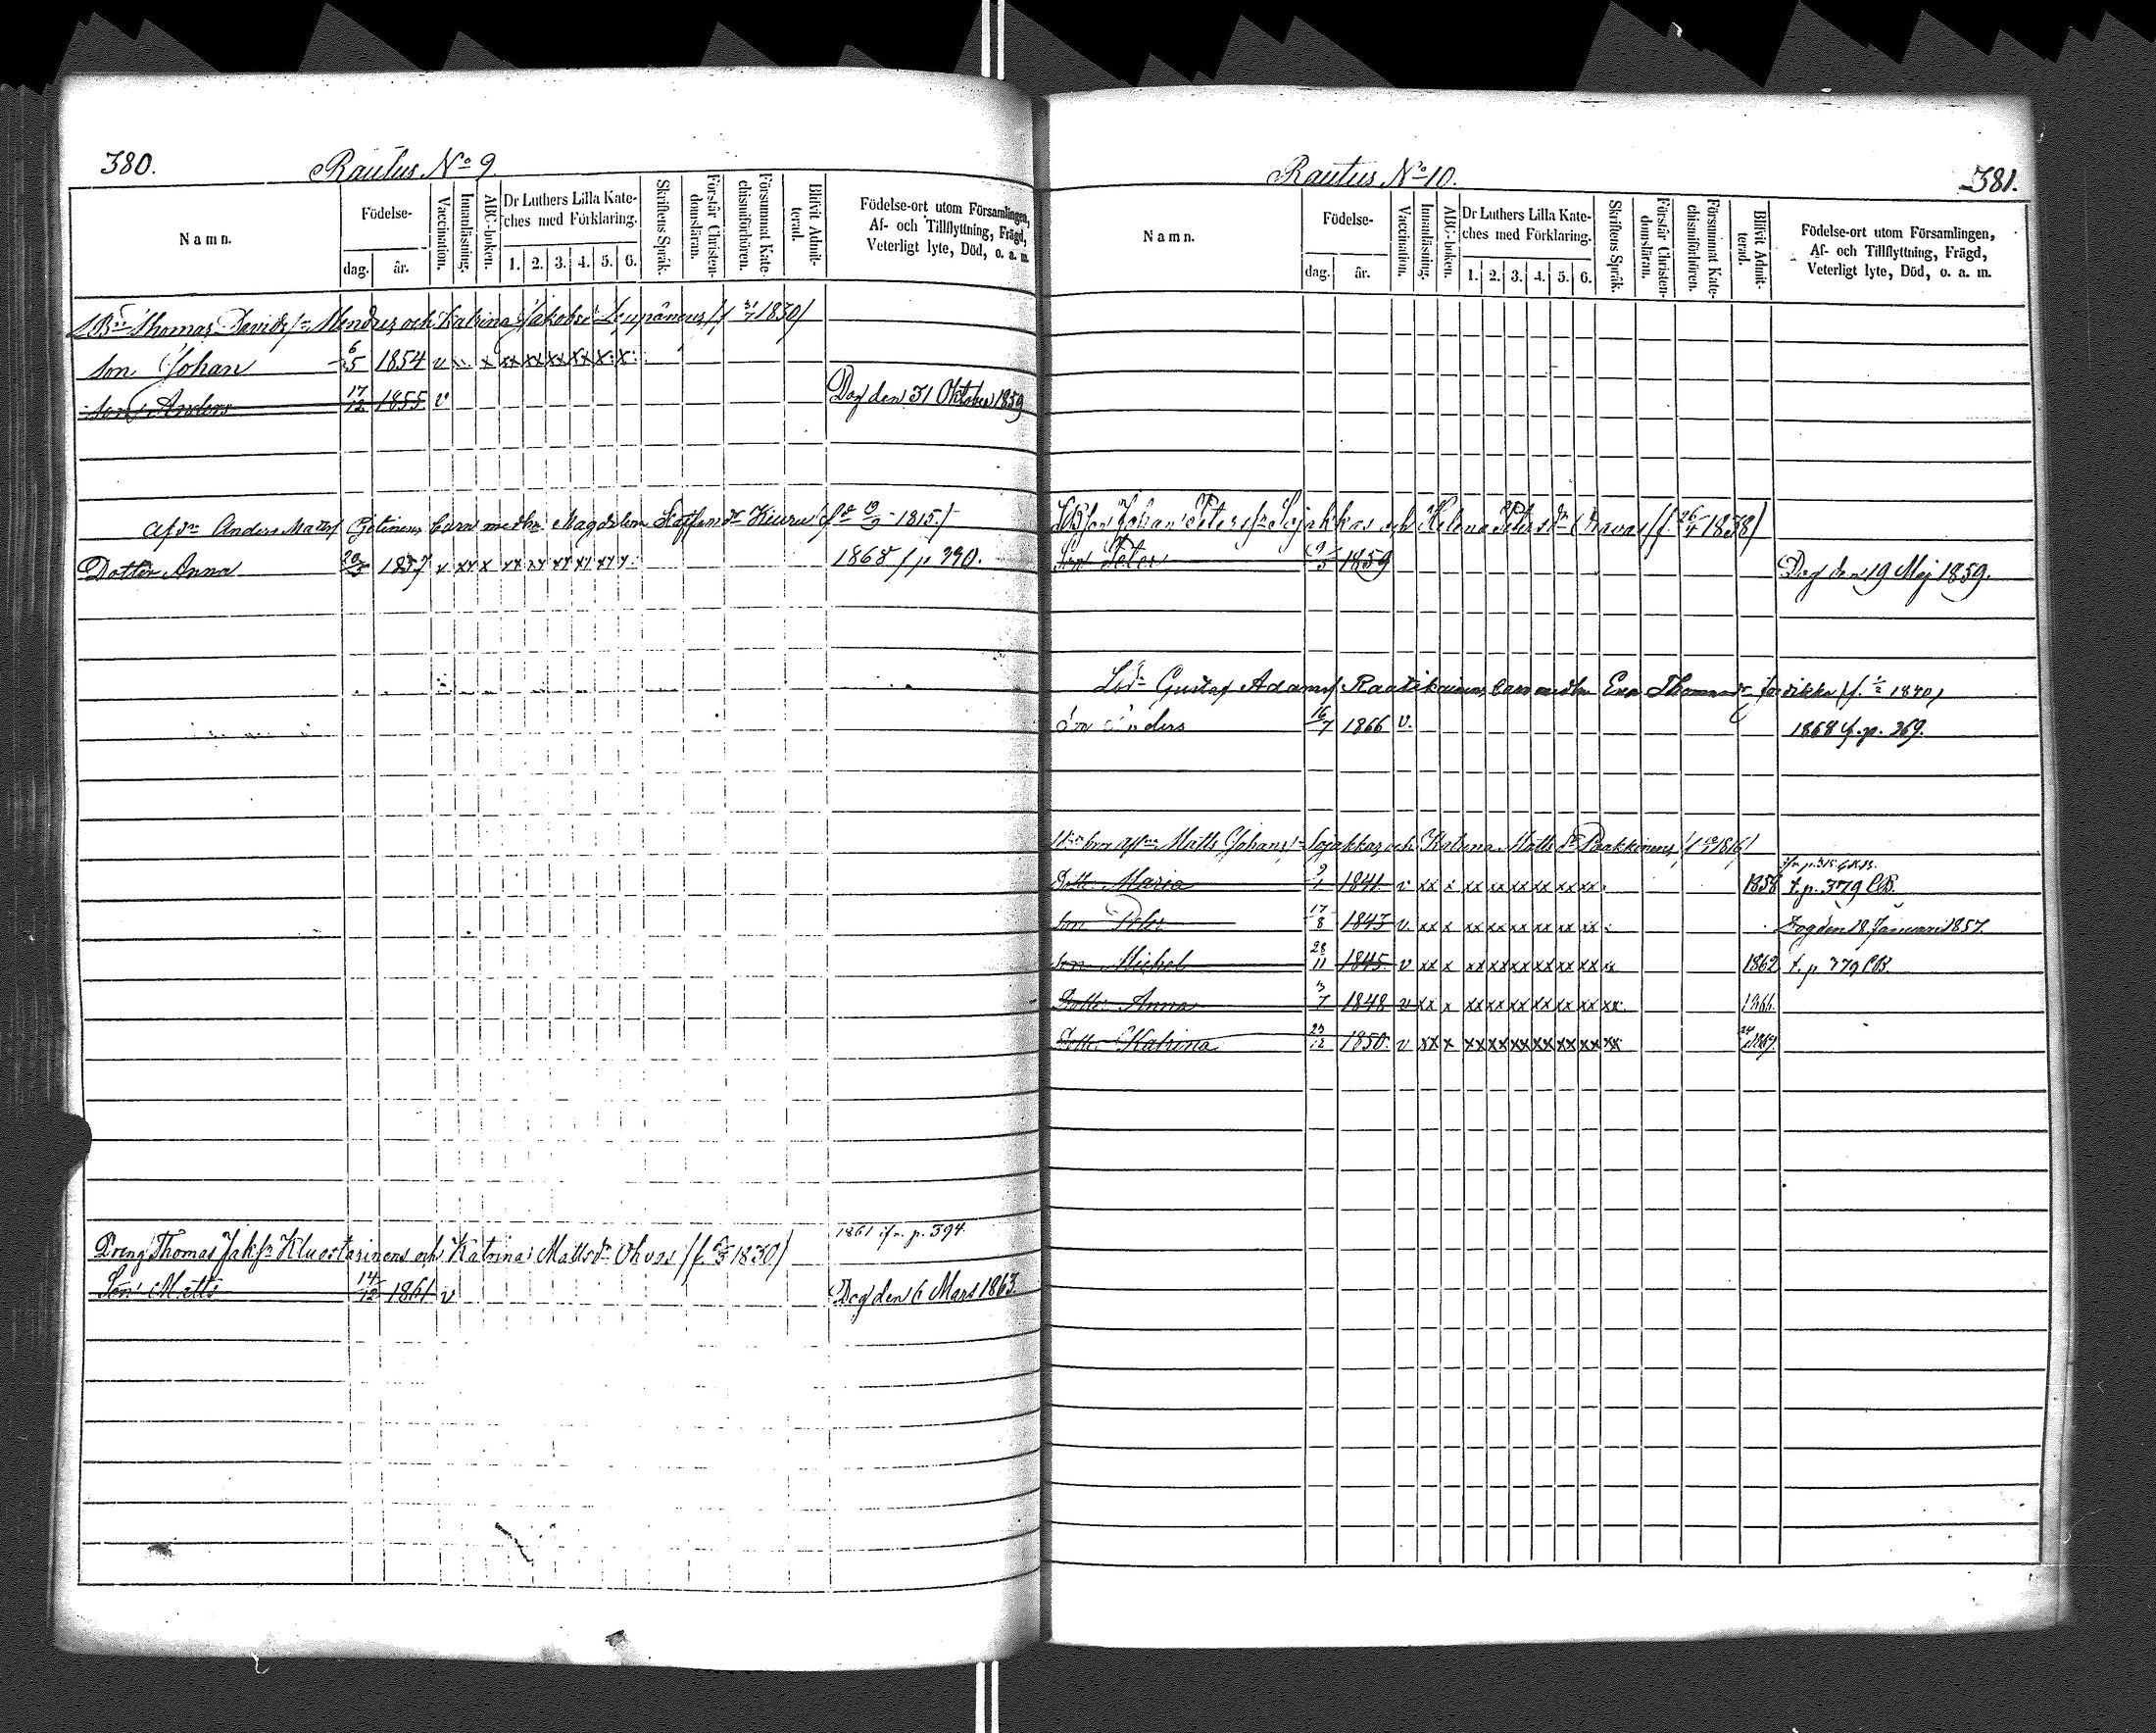 380.
Rautus No 9.
Namn.
Födelse-
dag.
år.
Vaccination.
Innanläsning.
ABC-boken.
Dr Luthers Lilla Kate-
ches med Förklaring.
1. 2. 3. 4. 5. 6.
Skriftens Språk.
Förstår Christen-
domsläran.
Försummat Kate-
chismiförhören.
Blifvit Admit-
terad.
Födelse-ort utom Församlingen,
Af- och Tillflyttning, Frägd,
Veterligt lyte, Död, o. a. m.
Thomas Davids Mendres och Katrina Jakobsdr 1830)
son Johan 6/5 1854 v x xx xx xx xx x. x.
son Anders 17/12 1855 v Dog den 31 Oktober 1859
Anders Matts barn med Magdalena Staffansdr Kiuru 1815)
Dotter Anna 1857 v xx x xx xx xx xx xx x. 1868 f. p 390.
1861 ifr. p. 394.
Dreng Thomas Jakss och Katrina Mattsdr Ohvas (f. 1830)
Son Matts 14/12 1861 v Dog den 6 Mars 1863.
Rautus No 10.
381.
Namn.
Födelse-
dag.
år.
Vaccination.
Innanläsning.
ABC-boken.
Dr Luthers Lilla Kate-
ches med Förklaring.
1. 2. 3. 4. 5. 6.
Skriftens Språk.
Förstår Christen-
domsläran.
Försummat Kate-
chismiförhören.
Blifvit Admit-
terad.
Födelse-ort utom Församlingen,
Af- och Tillflyttning, Frägd,
Veterligt lyte, Död, o. a. m.
Johan Peterss och Helena Petersdr (f. 26/4 1838)
Son Peter 9/5 1859 Dog den 19 Maj 1859.
Gustaf Adamss Raatikainens barn med Eva Thomasdr 1840)
Son Anders 16/7 1866 v. 1868 f. p. 369.
Matts Johans och Katrina Matts dr Paakkinens 1816)
Dottr Maria 1841 v xx x xx xx xx xx xx xx 1858 t. p. 379 CB.
son Petr 17/8 1843 v. xx x xx xx xx xx xx xx Dog den 18 Januari 1857.
son Michel 28/11 1845 v xx x xx xx xx xx xx xx x 1862 t. p 379 CB.
Dottr Anna 3/7 1848 v xx x xx xx xx xx xx xx xx 1866.
Dottr Katrina 23/12 1850 v xx x xx xx xx xx xx xx xx 1867.